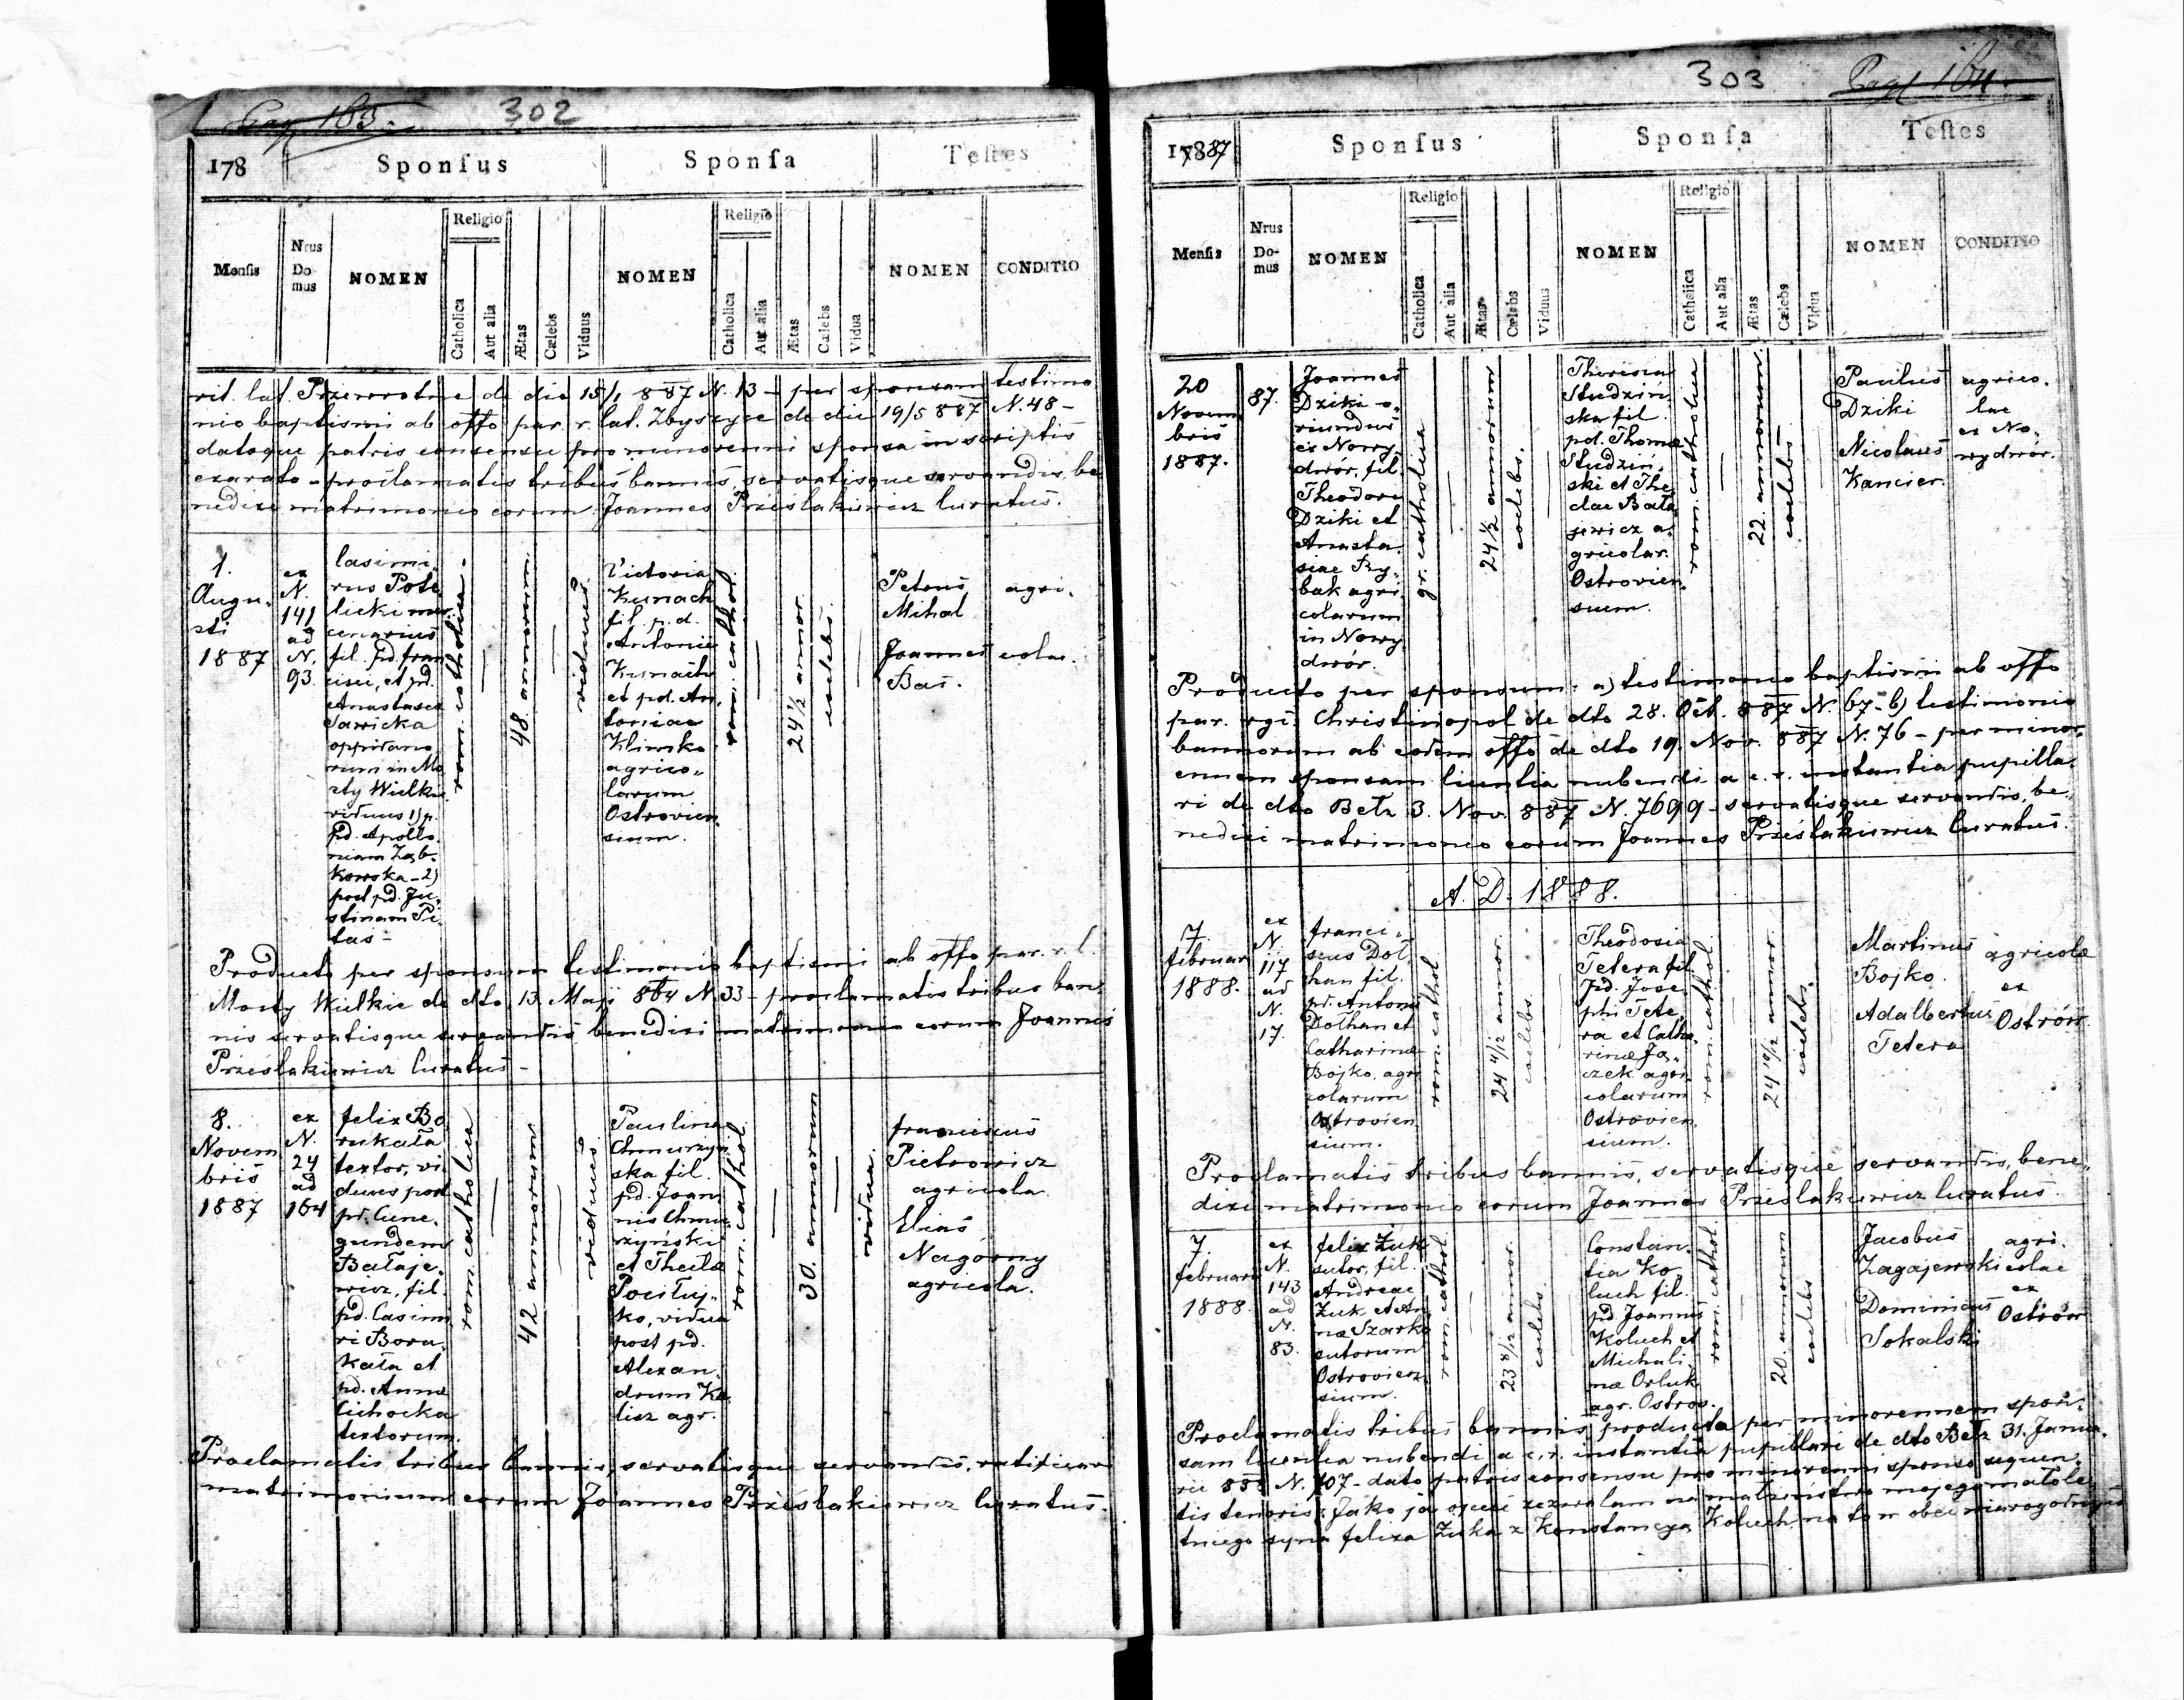 Pag 183.
302
178
Sponsus
Sponsa
Testes
Mensis
Nrus Domus
NOMEN
Religio
Catholica
Aut alia
Ætas
Cælebs
Viduus
NOMEN
Religio
Catholica
Aut alia
Ætas
Cælebs
Vidua
NOMEN
CONDITIO
rit. lat. Przewrotne de die 15/1 887 N. 13 - per sponsam testimo
nio baptismi ab offo par. r. lat. Zbyszyce de die 19/5 887 N. 48 -
datoque patris consensu pro minorenni sponsa in scriptis
exarato - proclamatis tribus bannis, servatisque servandis, be
nedixi matrimonio eorum Joannes Prześlakiewicz Curatus.
1.
Augu.
sti
1887
ex
N.
141
ad
N.
93.
Casimi.
rus Pote
licki mer
cenarius
fil. pd. fran
cisci, et pd.
Anastasea
Sawicka
oppidano
rum in Mo
sty Wielkie
viduus 1) p.
pd. Apollo.
niam Ząb.
kowska - 2)
post pd. Ju.
stinam Pi.
tas -
rom. catholica
48 annorum
viduus
Victoria
Kunach
fil. p. d.
Antonii
Kunach
et pd. An.
toniae
Klimko
agrico.
larum
Ostrovien
sium.
rom. cathol.
24 1/2 annor.
coelebs.
Petrus
Mihal
Joannes
Bas.
agri.
colae.
Producto per sponsum testimonio baptismi ab offo par. r. l.
Mosty Wielkie de dto 13. Maji 864 N. 33 - proclamatis tribus ban.
nis servatisque servandis benedixi matrimonio eorum Joannes
Prześlakiewicz Curatus -
8.
Novem
bris
1887
ex
N.
24
ad
164
felix Bo
rukała
textor, vi
duus post
pd. Cune.
gundem
Bałaje.
wicz, fil.
pd. Casimi
ri Boru.
kała et
pd. Anna
Cichocka
textorum.
rom. catholica
42 annorum
viduus
Paulina
Chmurzyń
ska fil.
pd. Joan
nis Chmu
rzyński
et Thecla
Pociłuj.
ko, vidua
post pd.
Alexan.
drum Ka
lisz agr.
rom. cathol.
30. annorum
vidua.
franciscus
Pietrowicz
agricola.
Elias
Nagórny
agricola.
Proclamatis tribus bannis, servatisque servandis, ratificavi
matrimonium eorum Joannes Prześlakiewicz Curatus.
303
Pag 184.
17887
Sponsus
Sponsa
Testes
Mensis
Nrus Domus
NOMEN
Religio
Catholica
Aut alia
Ætas
Cælebs
Viduus
NOMEN
Religio
Catholica
Aut alia
Ætas
Cælebs
Vidua
NOMEN
CONDITIO
20
Novem
bris
1887.
87.
Joannes
Dziki o.
riundus
ex Nowy
dwór, fil.
Theodori
Dziki et
Anasta.
siae Ry.
bak agri.
colarum
in Nowy
dwór.
gr. catholica
24 1/2 annorum
coelebs.
Theresia
Studziń.
ska fil.
pd. Thomae
Studziń.
ski et The.
clae Bała
jewicz a.
gricolar.
Ostrovien.
sium.
rom. catholica
22. annorum
coelebs
Paulus
Dziki
Nicolaus
Kancier.
agrico.
lae
ex No.
wydwór.
Producto per sponsum: a) testimonio baptismi ab offo
par. rgi. Christinopol de dto 28. Oct. 887 N. 67 - b) testimonio
bannorum ab eodem offo de dto 19. Nov. 887 N. 76 - per minor.
ennem sponsam licentia nubendi a c. r. instantia pupilla.
ri de dto Bełz 3. Nov. 887 N. 7699 - servatisque servandis, be.
nedixi matrimonio eorum Joannes Prześlakiewicz Curatus.
A. D. 1888.
7.
februar
1888.
ex
N.
117
ad
N.
17.
franci.
scus Doł
han fil.
pd. Antoni
Dołhan et
Catharinae
Bojko, agri
colarum
Ostrovien
sium.
rom. cathol
24 4/12 annor.
coelebs.
Theodosia
Tetera fil.
pd. Jose.
phi Tete.
ra et Catha.
rinae Ja.
czek agri.
colarum
Ostrovien
sium.
rom. cathol.
24 10/12 annor.
coelebs.
Martinus
Bojko.
Adalbertus
Tetera
agricolae
ex
Ostrów.
Proclamatis tribus bannis, servatisque servandis, bene.
dixi matrimonio eorum Joannes Prześlakiewicz Curatus.
7.
februarii
1888.
ex
N.
143
ad
N.
83.
felix Żuk
sutor, fil.
Andreae
Żuk et An
nae Szarko
sutorum
Ostrovien
sium.
rom. cathol
23 8/12 annor.
coelebs
Constan.
tia Ko
luch fil.
pd Joannis
Koluch et
Michali.
nae Orluk
agr. Ostrov.
rom. cathol.
20. annorum
coelebs
Jacobus
Zagajewski
Dominicus
Sokalski
agri.
colae
ex
Ostrów
Proclamatis tribus bannis, producta per minorennem spon.
sam licentia nubendi a c. r. instantia pupillari de dto Bełz 31. Janua.
rii 888 N. 707 - dato patris consensu pro minorenni sponso sequen.
tis tenoris: Jako ja ojciec zezwalam na małżeństwo mojego małole
tniego syna felixa Żuka z Konstancyą Koluch, na to w obec wiarogodnych